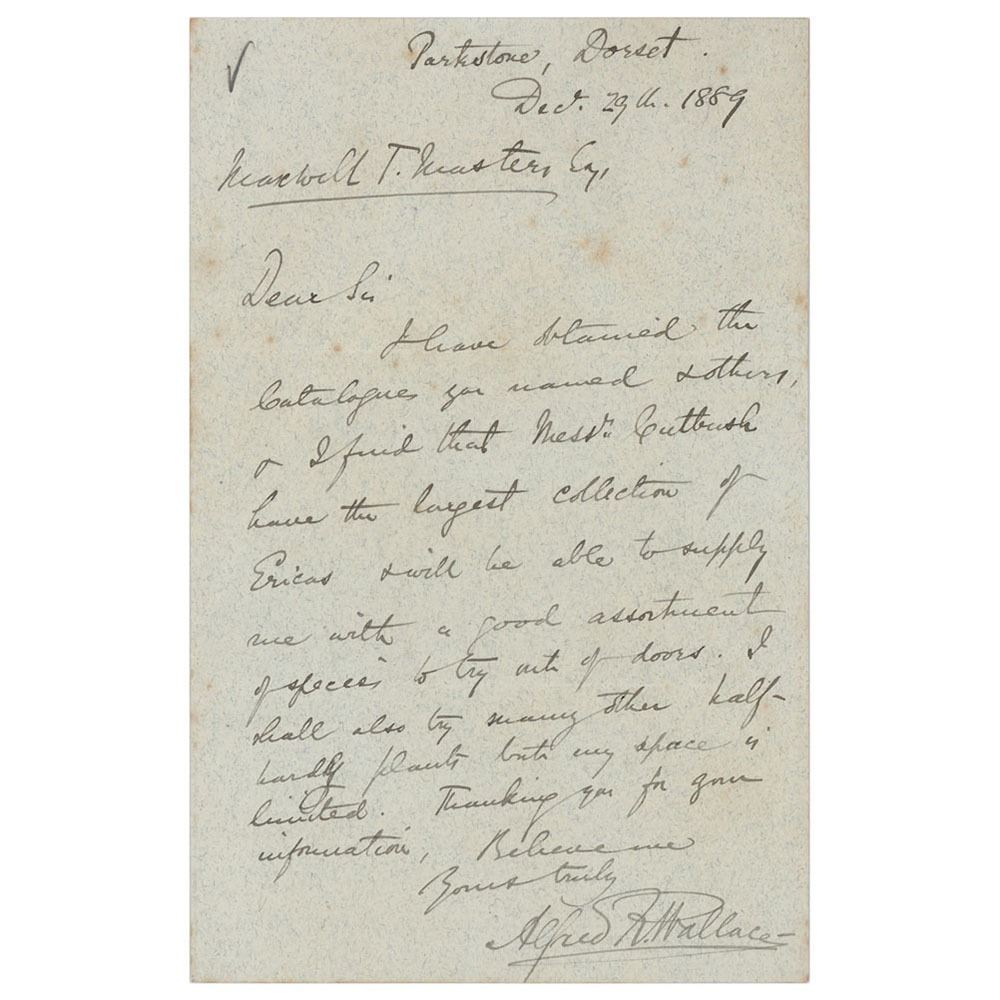 Parkstone, Dorset.
Decr. 29th. 1889
Maxwell T. Masters Esq,
Dear Sir
I have obtained the
Catalogues you named & others,
& I find that Messrs. Cutbush
have the largest collection of
Ericas & will be able to supply
me with a good assortment
of species to try out of doors. I
shall also try many other half-
hardy plants but my space is
limited. Thanking you for your
information, Believe me
Yours truly
Alfred R. Wallace